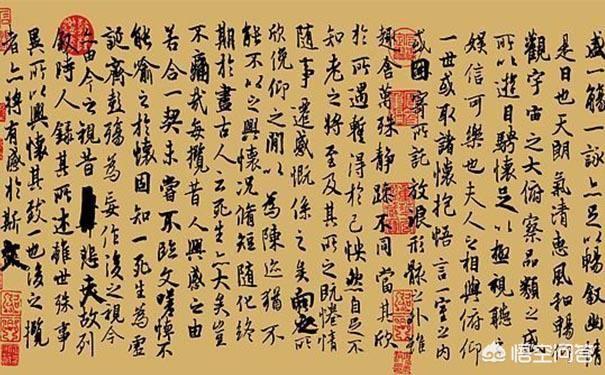 盛一觴一詠亦足以暢敘幽情
是日也天朗氣清惠風和暢仰
觀宇宙之大俯察品類之盛
所以遊目騁懷足以極視聽之
娛信可樂也夫人之相與俯仰
一世或取諸懷抱悟言一室之內
或因寄所託放浪形骸之外雖
趣舍萬殊靜躁不同當其欣
於所遇暫得於己怏然自足不
知老之將至及其所之既惓情
隨事遷感慨係之矣向之所
欣俛仰之閒以為陳迹猶不
能不以之興懷況脩短隨化終
期於盡古人云死生亦大矣豈
不痛哉每攬昔人興感之由
若合一契未嘗不臨文嗟悼不
能喻之於懷固知一死生為虛
誕齊彭殤為妄作後之視今
亦由今之視昔悲夫故列
敘時人錄其所述雖世殊事
異所以興懷其致一也後之攬
者亦將有感於斯文
悟空问答